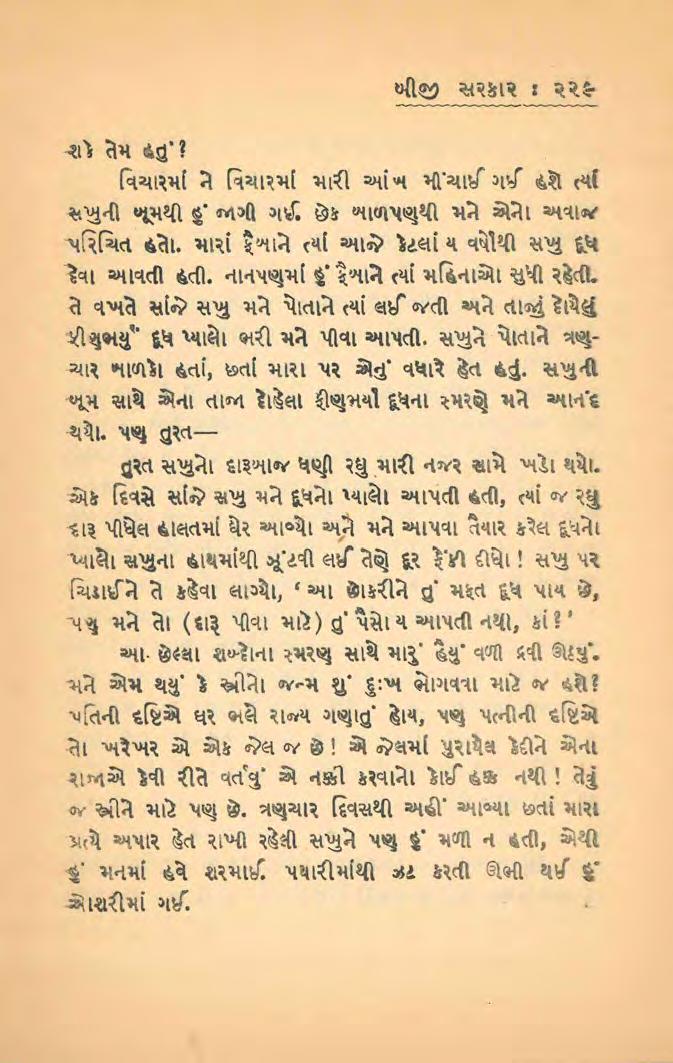 બીજી સરકાર : ૨૨૯
શકે તેમ હતું?
વિચારમાં ને વિચારમાં મારી આંખ મીંચાઈ ગઈ હશે ત્યાં
સખુની બૂમથી હું જાગી ગઈ. છેક બાળપણથી મને એનો અવાજ
પરિચિત હતો. મારાં ફૈબાને ત્યાં આજે કેટલાં ય વર્ષોથી સખુ દૂધ
દેવા આવતી હતી. નાનપણમાં હું ફૈબાને ત્યાં મહિનાઓ સુધી રહેતી.
તે વખતે સાંજે સખુ મને પોતાને ત્યાં લઈ જતી અને તાજું દોયેલું
ફીણભર્યું દૂધ પ્યાલો ભરી મને પીવા આપતી. સખુને પોતાને ત્રણ-
ચાર બાળકો હતાં, છતાં મારા પર એનું વધારે હેત હતું. સખુની
બૂમ સાથે એના તાજા દોહેલા ફીણભર્યા દૂધના સ્મરણે મને આનંદ
થયો. પણ તુરત—
તુરત સખુનો દારૂબાજ ધણી રઘુ મારી નજર સામે ખડો થયો.
એક દિવસે સાંજે સખુ મને દૂધનો પ્યાલો આપતી હતી, ત્યાં જ રઘુ
દારૂ પીધેલ હાલતમાં ઘેર આવ્યો અને મને આપવા તૈયાર કરેલ દૂધનો
પ્યાલો સખુના હાથમાંથી ઝૂંટવી લઈ તેણે દૂર ફેંકી દીધો! સખુ પર
ચિડાઈને તે કહેવા લાગ્યો, ‘આ છોકરીને તું મફત દૂધ પાય છે,
પણ મને તો (દારૂ પીવા માટે) તું પૈસો ય આપતી નથી, કાં?’
આ છેલ્લા શબ્દોના સ્મરણ સાથે મારું હૈયું વળી દ્રવી ઊઠ્યું.
મને એમ થયું કે સ્ત્રીનો જન્મ શું દુઃખ ભોગવવા માટે જ હશે?
પતિની દૃષ્ટિએ ઘર ભલે રાજ્ય ગણાતું હોય, પણ પત્નીની દૃષ્ટિએ
તો ખરેખર એ એક જેલ જ છે! એ જેલમાં પુરાયેલ કેદીને એના
રાજાએ કેવી રીતે વર્તવું એ નક્કી કરવાનો કોઈ હક્ક નથી! તેવું
જ સ્ત્રીને માટે પણ છે. ત્રણચાર દિવસથી અહીં આવ્યા છતાં મારા
પ્રત્યે અપાર હેત રાખી રહેલી સખુને પણ હું મળી ન હતી, એથી
હું મનમાં હવે શરમાઈ. પથારીમાંથી ઝટ કરતી ઊભી થઈ હું
ઓશરીમાં ગઈ.